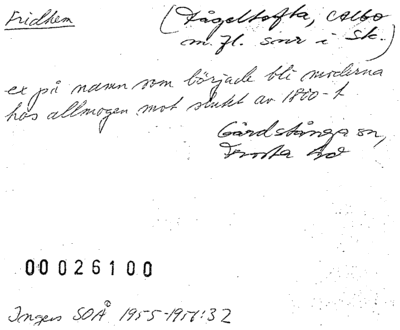 Fridhem
(Fågeltofta, Albo
m. fl. snr i Sk.)
ex på namn som började bli moderna
hos allmogen mot slutet av 1800-t
Gårdstånga sn,
Frosta hd
00026100
Ingers SOÅ 1955-1957:32